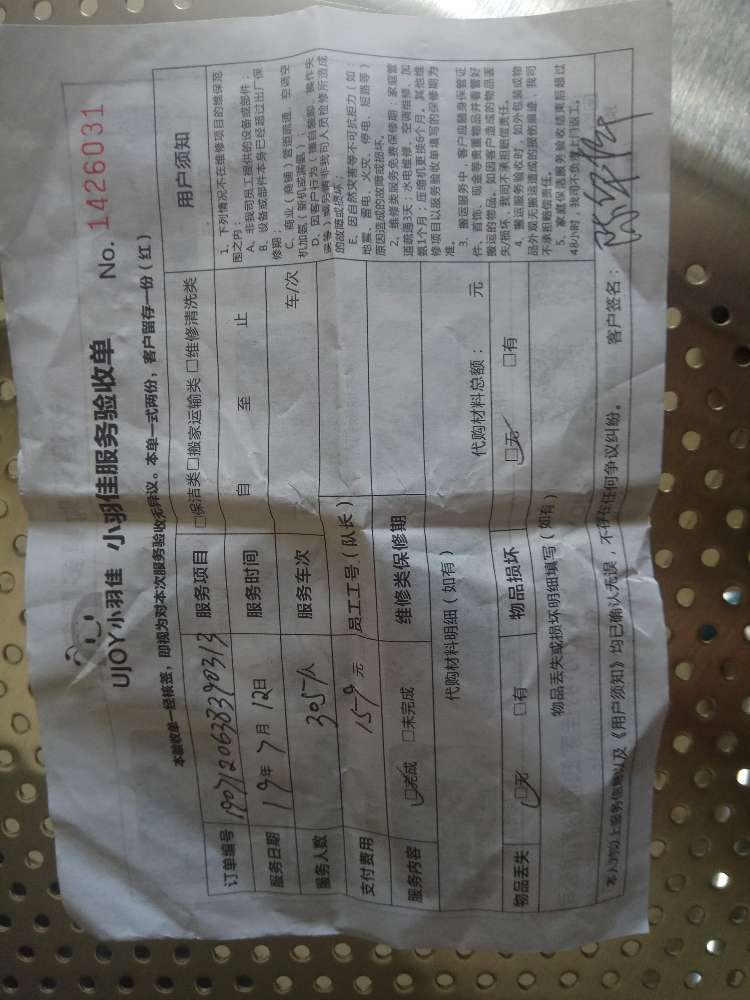 UJOY小羽佳 小羽佳服务验收单 No. 1426031
本验收单一经核签，即视为对本次服务验收无异议。本单一式两份，客户留存一份（红）
订单编号 服务项目 □保洁类□搬家运输类 □维修清洗类
服务日期 19年7月12日 服务时间 自 至 止
服务人数 服务车次 车/次
支付费用 元 员工工号（队长）
服务内容 □完成 □未完成 维修类保修期
代购材料明细（如有） 代购材料总额： 元
物品丢失 □无 □有 物品损坏 □无 □有
物品丢失或损坏明细填写（如有）
本人对以上服务信息以及《用户须知》均已确认无误，不存在任何争议纠纷。 客户签名：
用户须知
1、下列情况不在维修项目的维保范
围之内：
A、非我司员工提供的设备或部件；
B、设备或部件本身已经超过出厂保
修期；
C、商业（商铺）管道疏通、空调空
机加氨（新机或漏氨）；
D、因客户行为（擅自装卸、操作失
误等）或另请非我司人员检修所造成
的故障或损坏；
E、因自然灾害等不可抗拒力（如：
地震、蓄电、火灾、停电、短路等）
原因造成的故障或损坏。
2、维修类服务免费保修期：家庭管
道疏通3天；水电维修、空调维修、加
氨1个月；压缩机更换6个月。其他维
修项目以服务验收单填写的保修期为
准。
3、搬运服务中，客户应随身保管证
件、首饰、现金等贵重物品并看管好
搬运的物品，如因客户造成的物品丢
失/损坏，我司不承担赔偿责任。
4、搬运服务验收时，如外包装或物
品外观无搬运造成的损伤痕迹，我司
不承担赔偿责任。
5、家庭保洁服务验收结束后超过
48小时，我司不负责上门返工。